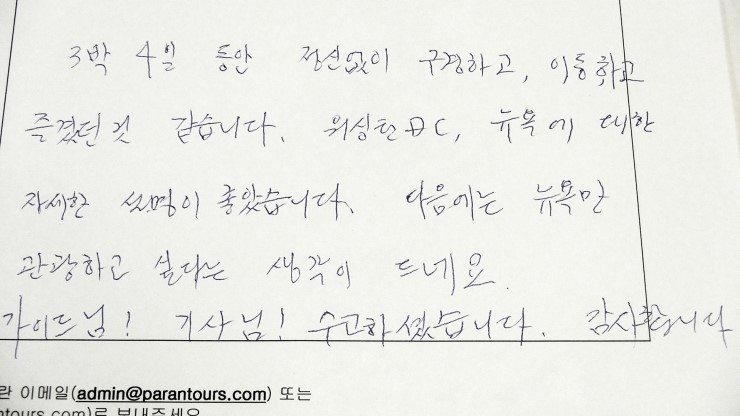 3박 4일 동안 정신없이 구경하고, 이동하고
즐겼던것 같습니다. 워싱턴DC, 뉴욕에 대한
자세한 설명이 좋았습니다. 다음에는 뉴욕만
관광하고 싶다는 생각이 드네요.
가이드님! 기사님! 수고하셨습니다. 감사합니다
란 이메일(admin@parantours.com) 또는
ntours.com)로 보내주세요